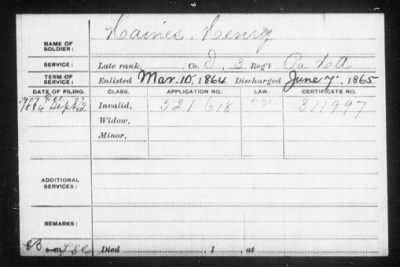 Haines, Henry
NAME OF SOLDIER:
SERVICE: Late rank, Co. D, 3 Reg't Pa H A
TERM OF SERVICE: Enlisted Mar. 10, 1864 Discharged June 7, 1865
DATE OF FILING. CLASS. APPLICATION NO. LAW. CERTIFICATE NO.
1884 Sept 2 Invalid, 521618 311997
Widow,
Minor,
ADDITIONAL SERVICES:
REMARKS:
Died , 1 , at